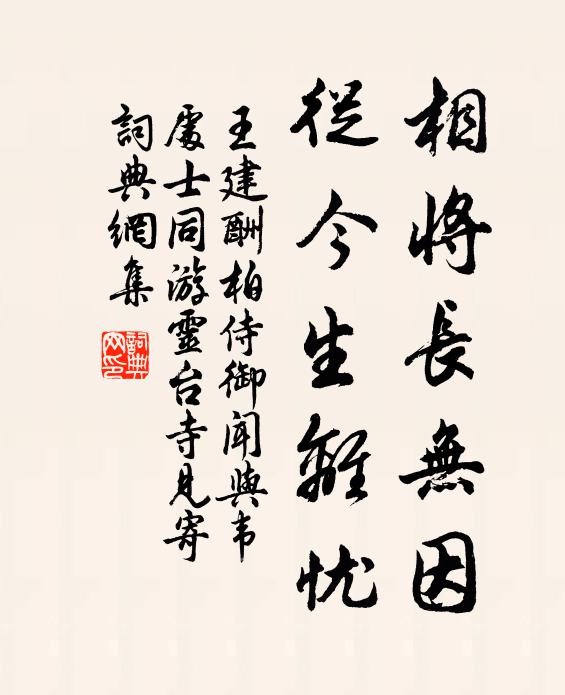 相將長無因
從今生離忧
王建酬柏侍御聞與韦
處士同游靈台寺見寄
詞典網集
詞典
网印